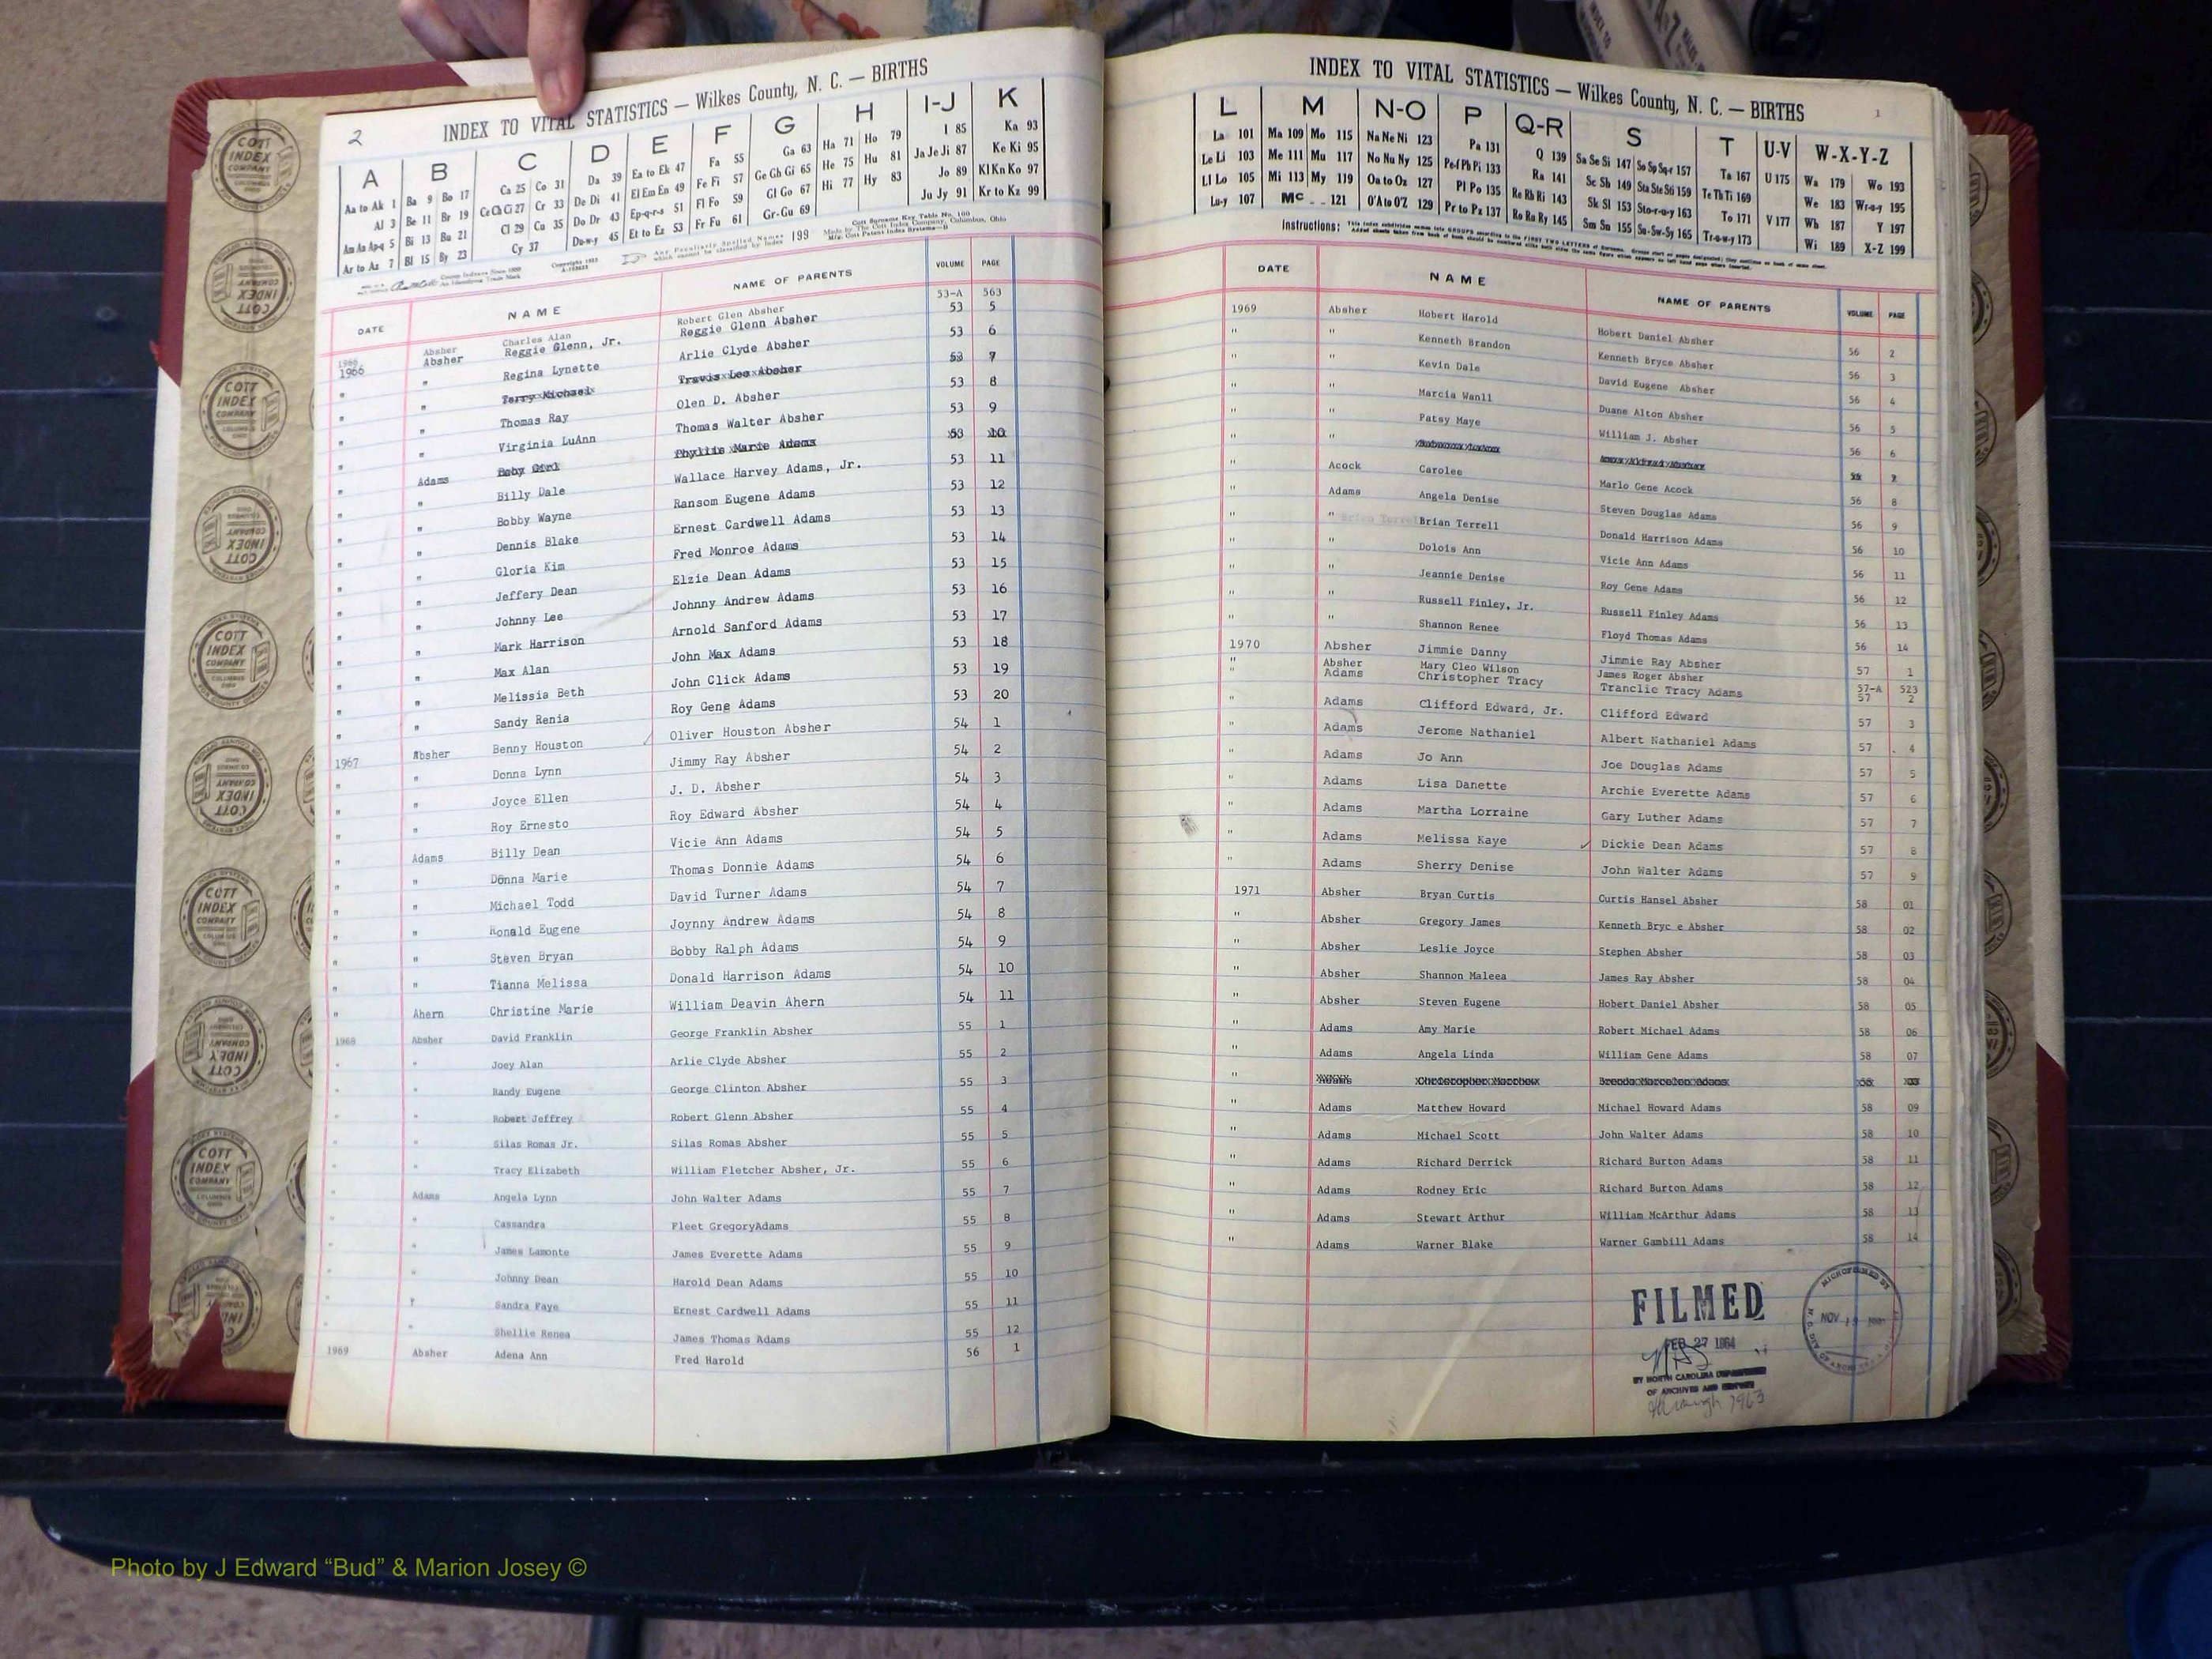 2
INDEX TO VITAL STATISTICS — Wilkes County, N. C. — BIRTHS
A B C D E F G H I-J K
Aa to Ak 1 Ba 9 Bo 17 Ca 25 Co 31 Da 39 Ea to Ek 47 Fa 55 Ga 63 Ha 71 Ho 79 I 85 Ka 93
Al 3 Be 11 Br 19 Ce Ch Ci 27 Cr 33 De Di 41 El Em En 49 Fe Fi 57 Ge Gh Gi 65 He 75 Hu 81 Ja Je Ji 87 Ke Ki 95
Am An Ap-q 5 Bi 13 Bu 21 Cl 29 Cu 35 Do Dr 43 Ep-q-r-s 51 Fl Fo 59 Gl Go 67 Hi 77 Hy 83 Jo 89 Kl Kn Ko 97
Ar to Az 7 Bl 15 By 23 Cy 37 Du-w-y 45 Et to Ez 53 Fr Fu 61 Gr-Gu 69 Ju Jy 91 Kr to Kz 99
County Indexes Since 1888
An Identifying Trade Mark
Any Peculiarly Spelled Names which cannot be classified by Index 199
Cott Surname Key Table No. 100
Made by The Cott Index Company, Columbus, Ohio
DATE NAME NAME OF PARENTS VOLUME PAGE
1966 Absher Charles Alan Robert Glen Absher 53-A 563
1966 Absher Reggie Glenn, Jr. Reggie Glenn Absher 53 5
" " Regina Lynette Arlie Clyde Absher 53 6
" " Terry Michael Travis Lee Absher 53 7
" " Thomas Ray Olen D. Absher 53 8
" " Virginia LuAnn Thomas Walter Absher 53 9
" Adams Baby Girl Phyllis Marie Adams 53 10
" " Billy Dale Wallace Harvey Adams, Jr. 53 11
" " Bobby Wayne Ransom Eugene Adams 53 12
" " Dennis Blake Ernest Cardwell Adams 53 13
" " Gloria Kim Fred Monroe Adams 53 14
" " Jeffery Dean Elzie Dean Adams 53 15
" " Johnny Lee Johnny Andrew Adams 53 16
" " Mark Harrison Arnold Sanford Adams 53 17
" " Max Alan John Max Adams 53 18
" " Melissia Beth John Click Adams 53 19
" " Sandy Renia Roy Gene Adams 53 20
1967 Absher Benny Houston Oliver Houston Absher 54 1
" " Donna Lynn Jimmy Ray Absher 54 2
" " Joyce Ellen J. D. Absher 54 3
" " Roy Ernesto Roy Edward Absher 54 4
" Adams Billy Dean Vicie Ann Adams 54 5
" " Donna Marie Thomas Donnie Adams 54 6
" " Michael Todd David Turner Adams 54 7
" " Ronald Eugene Joynny Andrew Adams 54 8
" " Steven Bryan Bobby Ralph Adams 54 9
" " Tianna Melissa Donald Harrison Adams 54 10
" Ahern Christine Marie William Deavin Ahern 54 11
1968 Absher David Franklin George Franklin Absher 55 1
" " Joey Alan Arlie Clyde Absher 55 2
" " Randy Eugene George Clinton Absher 55 3
" " Robert Jeffrey Robert Glenn Absher 55 4
" " Silas Romas Jr. Silas Romas Absher 55 5
" " Tracy Elizabeth William Fletcher Absher, Jr. 55 6
" Adams Angela Lynn John Walter Adams 55 7
" " Cassandra Fleet GregoryAdams 55 8
" " James Lamonte James Everette Adams 55 9
" " Johnny Dean Harold Dean Adams 55 10
" " Sandra Faye Ernest Cardwell Adams 55 11
" " Shellie Renea James Thomas Adams 55 12
1969 Absher Adena Ann Fred Harold 56 1
INDEX TO VITAL STATISTICS — Wilkes County, N. C. — BIRTHS 1
L M N-O P Q-R S T U-V W-X-Y-Z
La 101 Ma 109 Mo 115 Na Ne Ni 123 Pa 131 Q 139 Sa Se Si 147 So Sp Sq-r 157 Ta 167 U 175 Wa 179 Wo 193
Le Li 103 Me 111 Mu 117 No Nu Ny 125 Pe-f Ph Pi 133 Ra 141 Sc Sh 149 Sta Ste Sti 159 Te Th Ti 169 We 183 Wr-u-y 195
Ll Lo 105 Mi 113 My 119 Oa to Oz 127 Pl Po 135 Re Rh Ri 143 Sk Sl 153 Sto-r-u-y 163 To 171 V 177 Wh 187 Y 197
Lu-y 107 Mc 121 O'A to O'Z 129 Pr to Pz 137 Ro Ru Ry 145 Sm Sn 155 Su-Sw-Sy 165 Tr-u-w-y 173 Wi 189 X-Z 199
Instructions:
DATE NAME NAME OF PARENTS VOLUME PAGE
1969 Absher Hobert Harold Hobert Daniel Absher 56 2
" " Kenneth Brandon Kenneth Bryce Absher 56 3
" " Kevin Dale David Eugene Absher 56 4
" " Marcia Wanll Duane Alton Absher 56 5
" " Patsy Maye William J. Absher 56 6
" "
" Acock Carolee Marlo Gene Acock 56 8
" Adams Angela Denise Steven Douglas Adams 56 9
" " Brian Terrell Donald Harrison Adams 56 10
" " Dolois Ann Vicie Ann Adams 56 11
" " Jeannie Denise Roy Gene Adams 56 12
" " Russell Finley, Jr. Russell Finley Adams 56 13
" " Shannon Renee Floyd Thomas Adams 56 14
1970 Absher Jimmie Danny Jimmie Ray Absher 57 1
" Absher Mary Cleo Wilson James Roger Absher 57-A 523
" Adams Christopher Tracy Tranclie Tracy Adams 57 2
" Adams Clifford Edward, Jr. Clifford Edward 57 3
" Adams Jerome Nathaniel Albert Nathaniel Adams 57 4
" Adams Jo Ann Joe Douglas Adams 57 5
" Adams Lisa Danette Archie Everette Adams 57 6
" Adams Martha Lorraine Gary Luther Adams 57 7
" Adams Melissa Kaye Dickie Dean Adams 57 8
" Adams Sherry Denise John Walter Adams 57 9
1971 Absher Bryan Curtis Curtis Hansel Absher 58 01
" Absher Gregory James Kenneth Bryc e Absher 58 02
" Absher Leslie Joyce Stephen Absher 58 03
" Absher Shannon Maleea James Ray Absher 58 04
" Absher Steven Eugene Hobert Daniel Absher 58 05
" Adams Amy Marie Robert Michael Adams 58 06
" Adams Angela Linda William Gene Adams 58 07
" Adams Christopher Matthew Brenda Adams
" Adams Matthew Howard Michael Howard Adams 58 09
" Adams Michael Scott John Walter Adams 58 10
" Adams Richard Derrick Richard Burton Adams 58 11
" Adams Rodney Eric Richard Burton Adams 58 12
" Adams Stewart Arthur William McArthur Adams 58 13
" Adams Warner Blake Warner Gambill Adams 58 14
FILMED
FEB 27 1964
BY NORTH CAROLINA DEPARTMENT
OF ARCHIVES AND HISTORY
through 1963
MICROFILMED BY
NOV
COTT INDEX COMPANY
Photo by J Edward “Bud” & Marion Josey ©